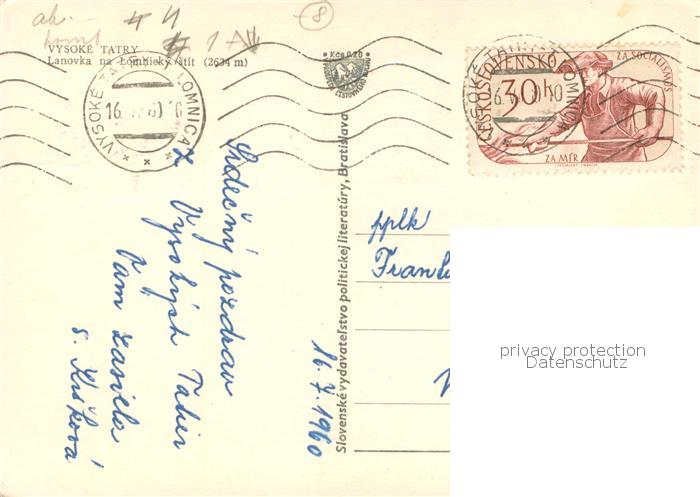 VYSOKÉ TATRY
Lanovka na Lomnický štít (2634 m)
Kčs 0,20
VYSOKÉ TATRY LOMNICA
16. 60
ČESKOSLOVENSKO
30 h
ZA SOCIALISMUS
ZA MÍR
Srdečný pozdrav
z Vysokých Tatier
Vám zasiela
S. Kršková
16.7.1960
Slovenské vydavateľstvo politickej literatúry, Bratislava
pplk
privacy protection
Datenschutz